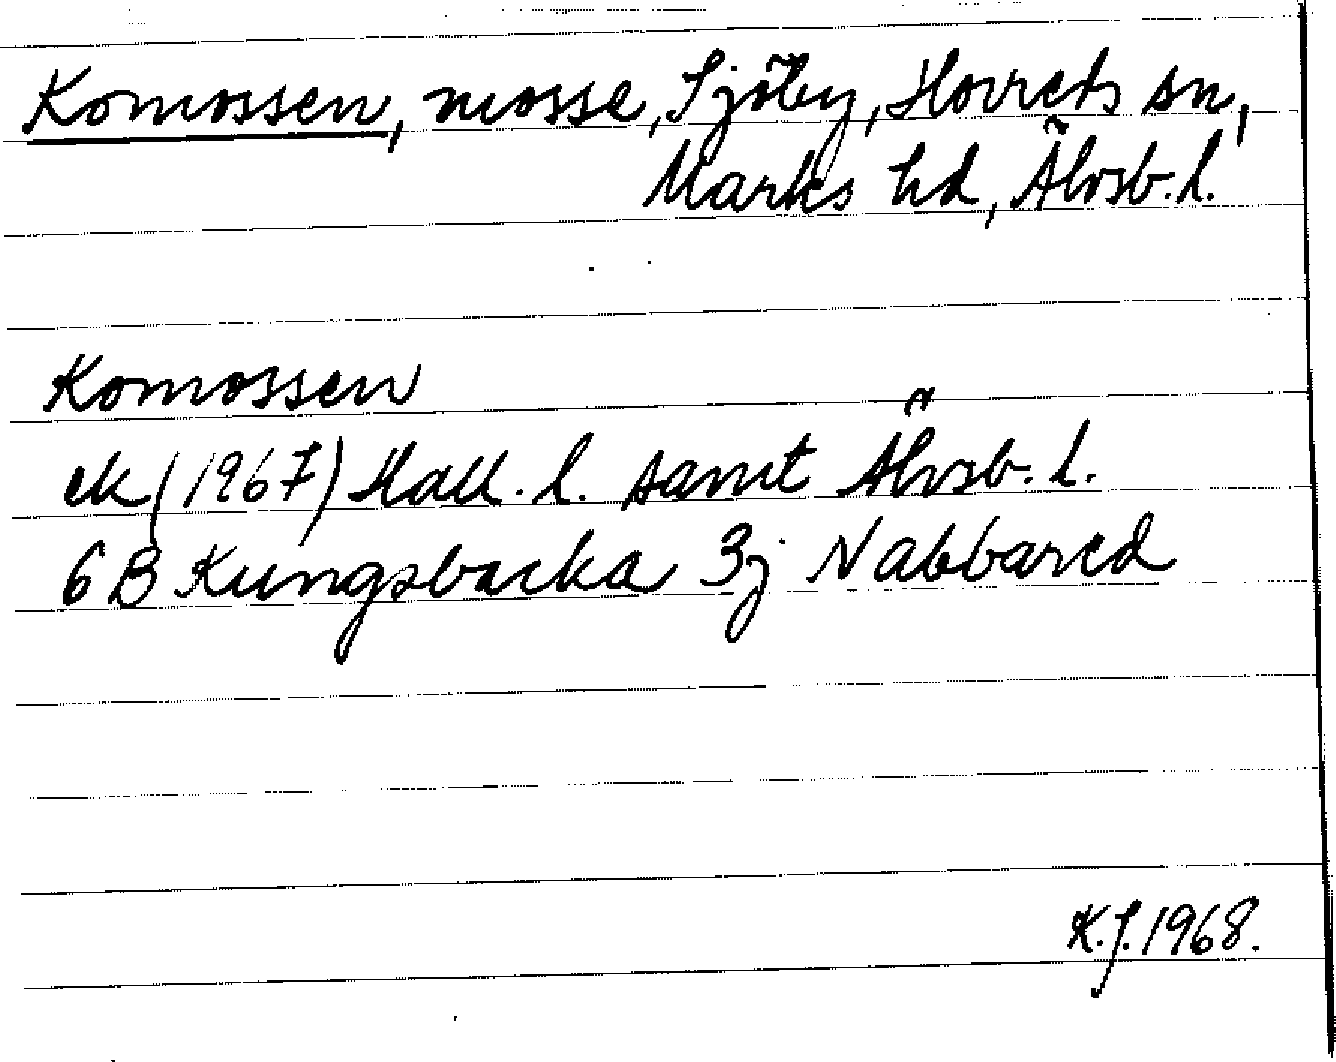 Komossen, mosse, Sjöby, Horreds sn,
Marks hd, Älvsb. l.
Komossen
ek (1967) Hall. l. samt Älvsb. l.
6 B Kungsbacka 3j Nabbared
K.J. 1968.